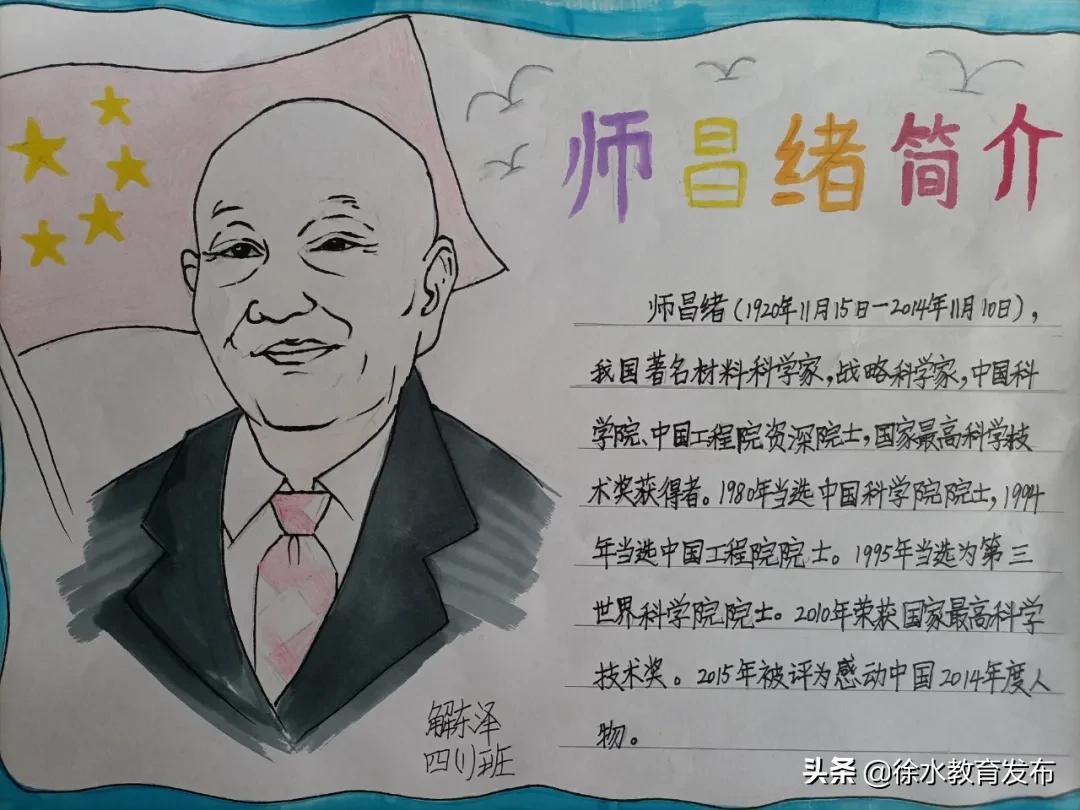 师昌绪简介
师昌绪(1920年11月15日—2014年11月10日),
我国著名材料科学家,战略科学家,中国科
学院、中国工程院资深院士,国家最高科学技
术奖获得者。1980年当选中国科学院院士,1994
年当选中国工程院院士。1995年当选为第三
世界科学院院士。2010年荣获国家最高科学
技术奖。2015年被评为感动中国2014年度人
物。
解东泽
四(1)班
头条 @徐水教育发布